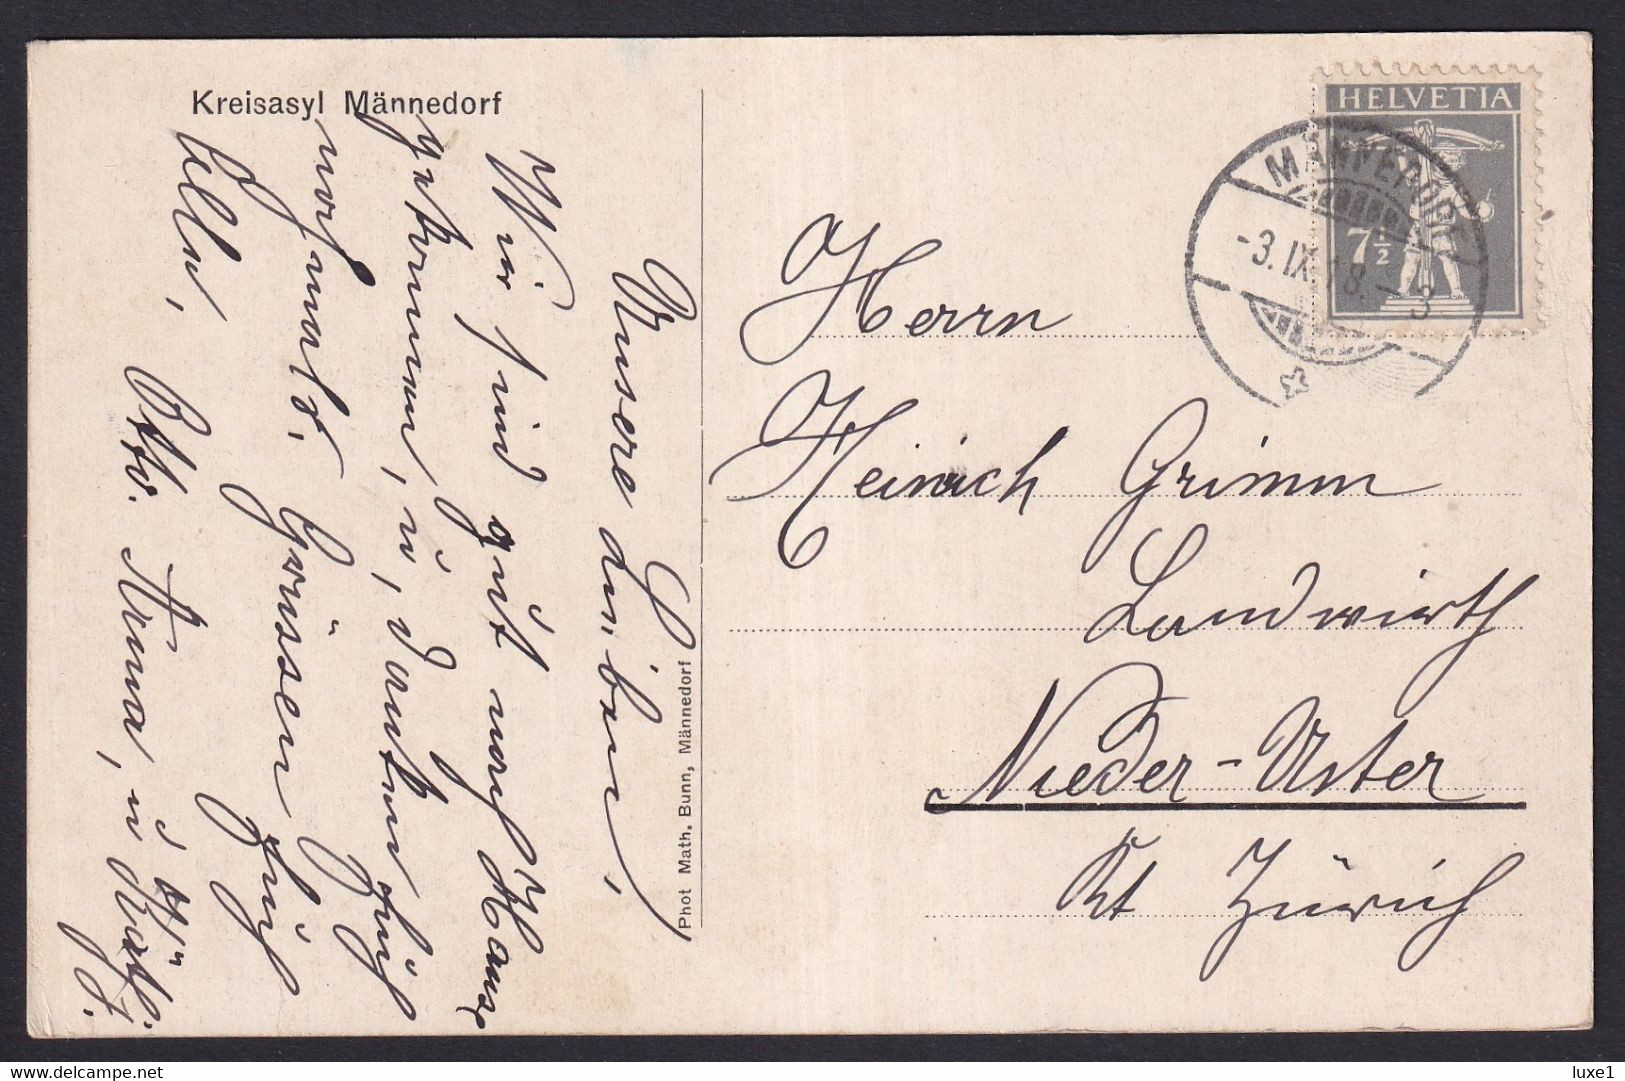 Kreisasyl Männedorf
Unsere Lieben,
Wir sind gut nach Hause
gekommen, u, danken Euch
nochmals. Grüssen Euch
Alle,
Otto. Anna, u Kätzi.
Phot Math. Bunn, Männedorf
HELVETIA
7½
MÄNNEDORF
-3. IX. 18. - 3
Herrn
Heinrich Grimm
Landwirth
Nieder-Uster
Kt Zürich
delcampe.net
luxe1